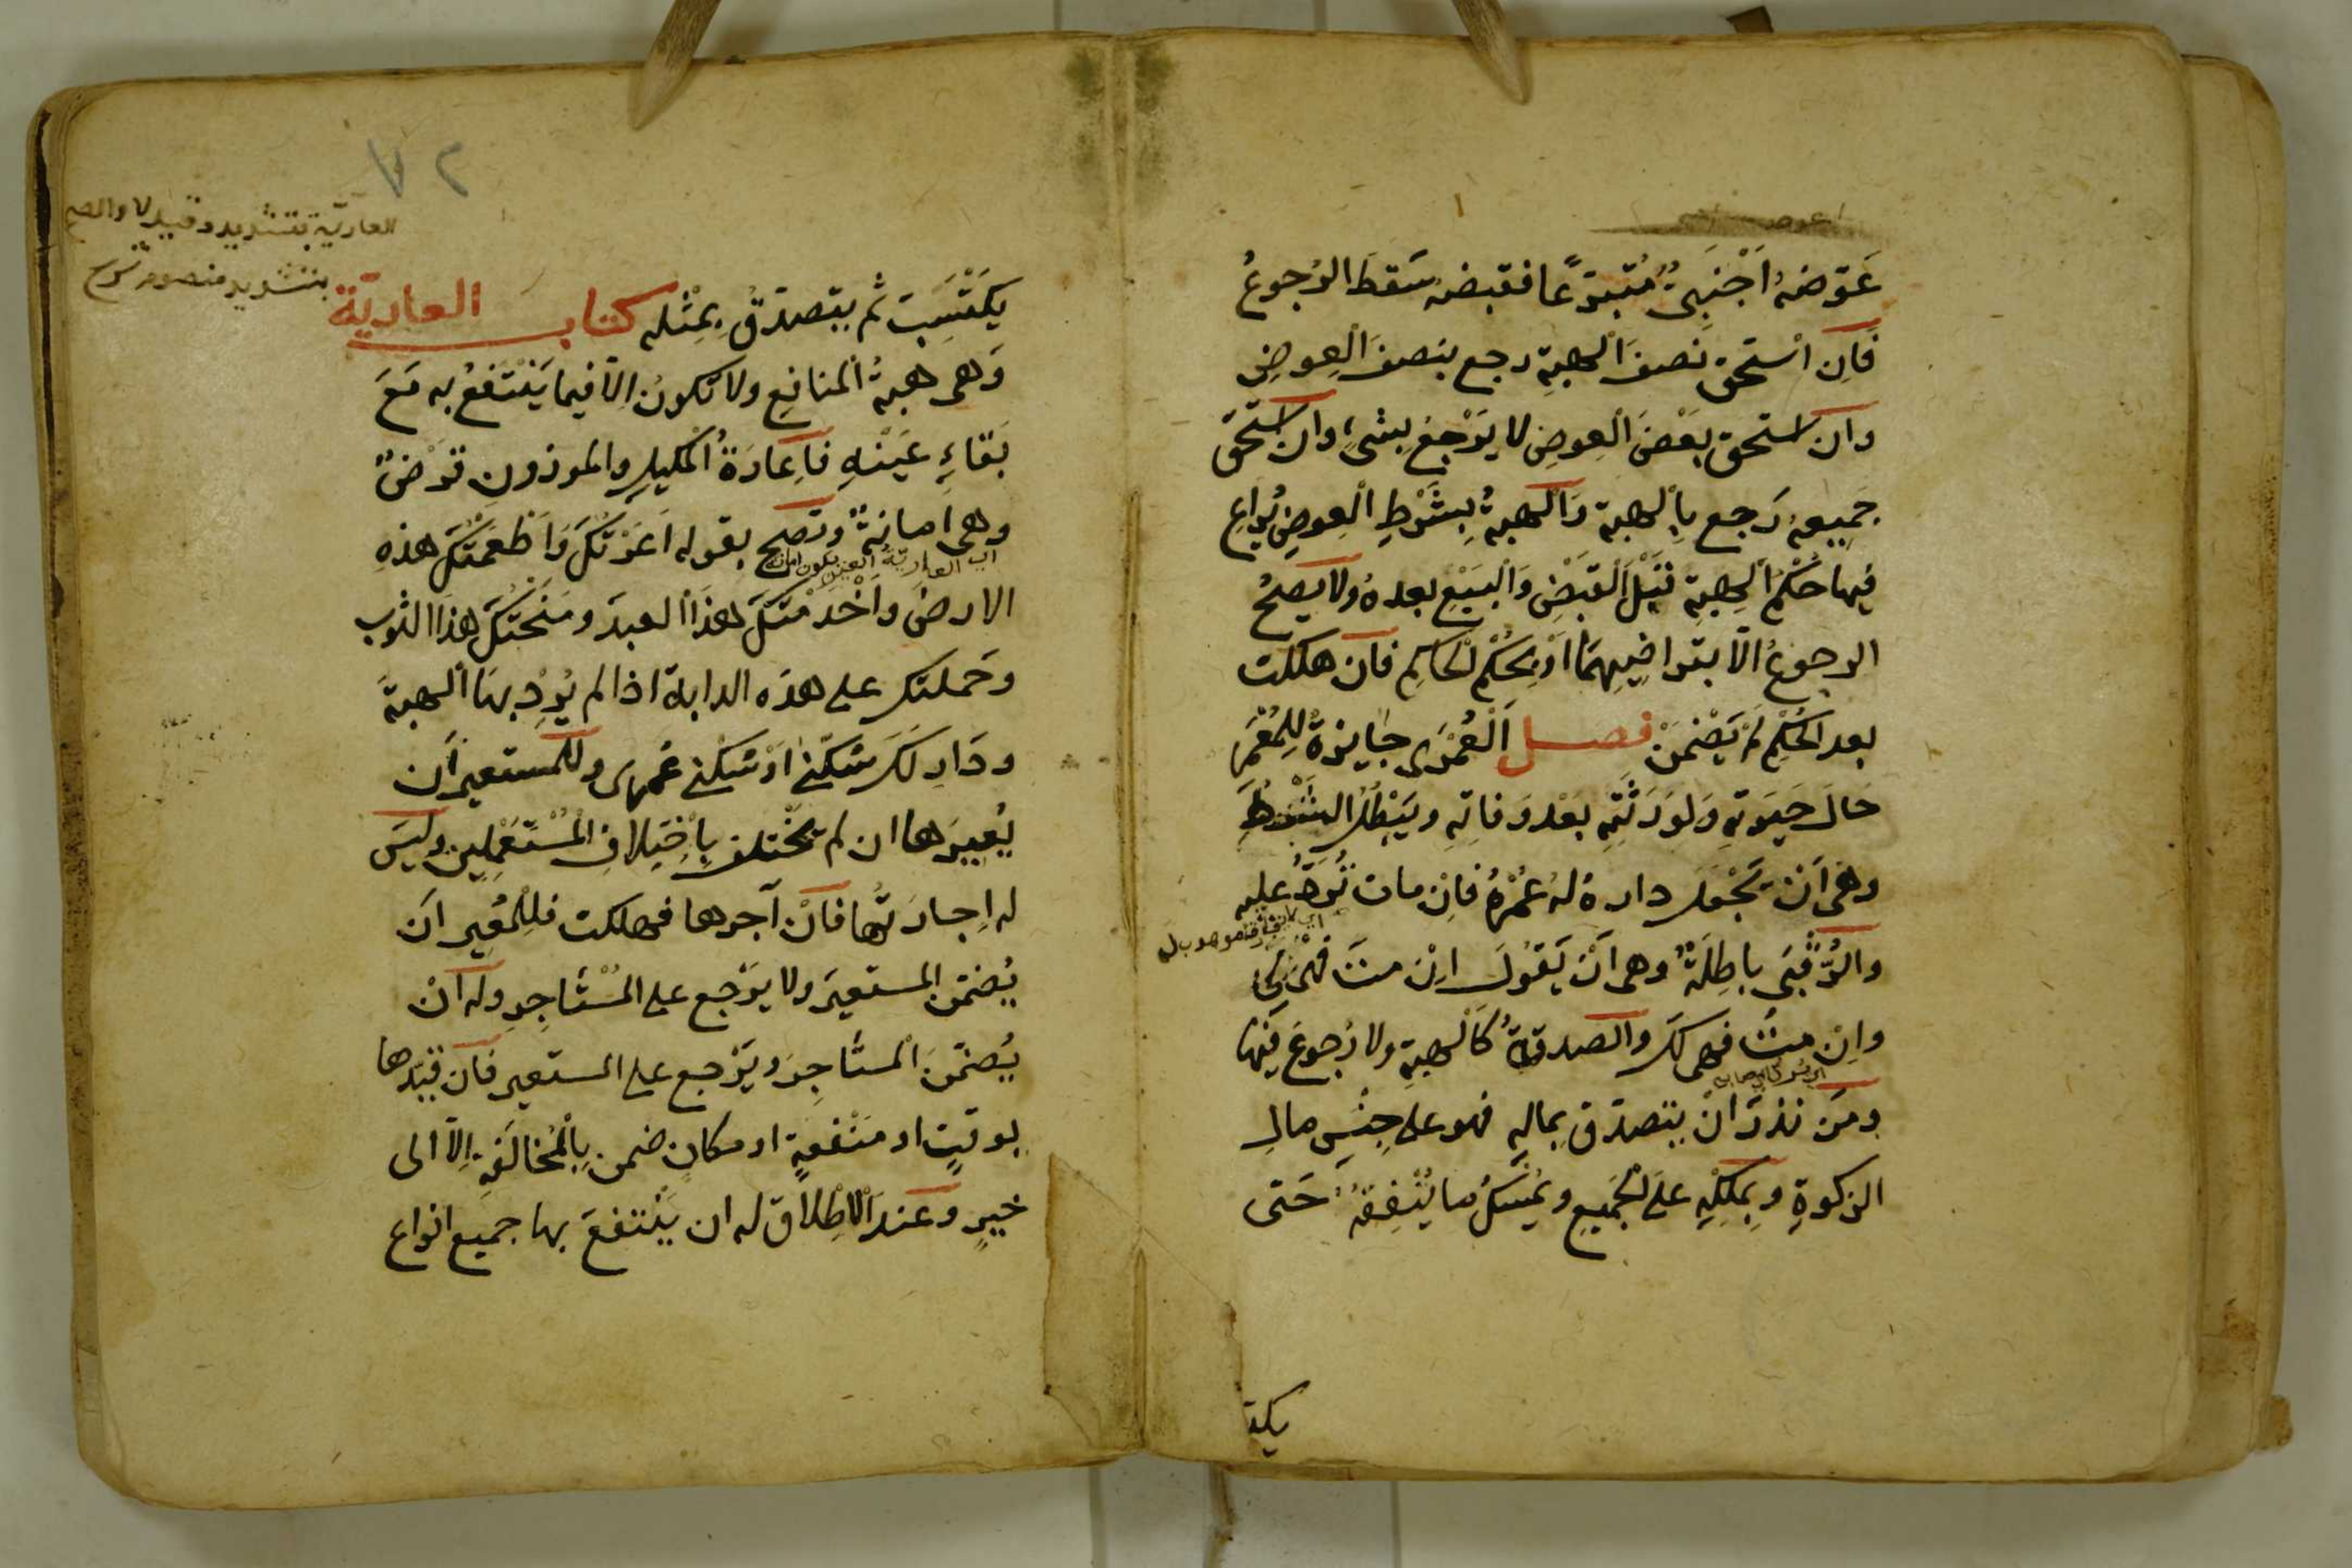 عَوَّضهُ اَجْنَبِىٌّ مُتَبَرِّعًا فقبضهُ سَقَطَ الرُجوعُ
فَاِن اسْتحق نصفَ الْهبةِ رجع بنصفِ الْعِوضِ
وان استحق بَعْضَ الْعِوضِ لا يَرْجع بشىءٍ وان استحَقَّ
جميعه رَجع بِالْهبة وَالْهبةُ بِشَرْطِ الْعِوضِ يُراعى
فيها حُكْمُ الْهِبةِ قبْلَ الْقَبْضِ وَالْبَيْعِ بعدهُ ولا يصحُ
الرجوعُ الّا بتراضِيهِمَا اَوْ بحُكْمِ الْحَاكِمِ فان هلكت
بعد الحُكْمِ لَمْ يَضْمَنْ فصل اَلْعُمْرٰى جَايزةٌ لِلْمُعْمَرِ
حَالَ حَيوتِهِ وَلِوَرَثَتِهِ بَعْد وَفاتِهِ ويَبْطُلُ الشَّرْط
وهى اَنْ يَجْعَلَ دارهُ لهُ عُمْرهُ فَاِنْ مات تُرَدُّ عليه
والرُّقْبٰى باطِلَةٌ وهى اَنْ يَقُولَ اِنْ متَّ فهىَ لِى
وَاِنْ متُّ فهى لكَ والصدقةُ كَالْهبةِ ولا رُجوعَ فِيهَا
ومَن نذرَ انْ يتصدّق بمالِهِ فهو على جِنْسِ مالِ
الزكوةِ وبِمِلْكِهِ على الْجَميعِ ويُمْسِكُ ما يُنْفِقُهُ حَتى
يكت
٧٢
العاريّة بتشديد وقيل لا والصح
بتشديد منصوم
يكتَسِبَ ثم يتصدّقُ بمِثْله كتاب العاريّة
وَهى هبةُ المنافِعِ ولا تكونُ اِلّا فيما يَنْتَفعُ به مَعَ
بَقاءِ عَيْنهِ فَاِعَارَةُ الْمكيلِ والموزون قَرْضٌ
وهى امانةٌ وتصحُ بقوله اَعَرْتُكَ وَاَطْعَمْتُكَ هذهِ
اى العارية العين يكون امانة
الارضَ وَاَخْدَمْتُكَ هذَا العبدَ ومَنَحْتُكَ هذَا الثوب
وحَملتك على هذه الدابة اذا لم يُرِدْ بهَا الهبةَ
ودَارِى لكَ سُكْنٰى اَوْ سُكْنٰى عُمْرٰى وللمستعير اَن
يُعِيرَها ان لم تختلف بِاخْتِلافِ الْمُسْتَعْمِلِين وليسَ
له اِجارَتُها فاَنْ آجرها فهلكت فلِلْمُعِير اَن
يُضمّن المستعيرَ ولا يَرْجع على الْمُسْتَاجِرِ وله اَنْ
يُضمّنَ الْمستاجِرَ ويَرْجع على المستعير فان قيّدها
بوقتٍ او مَنْفعةٍ او مكانٍ ضمن بِالْمُخالَفَةِ اِلّا الى
خيرٍ وعندَ الْاِطْلَاق له ان يَنْتفعَ بها جميع انواع